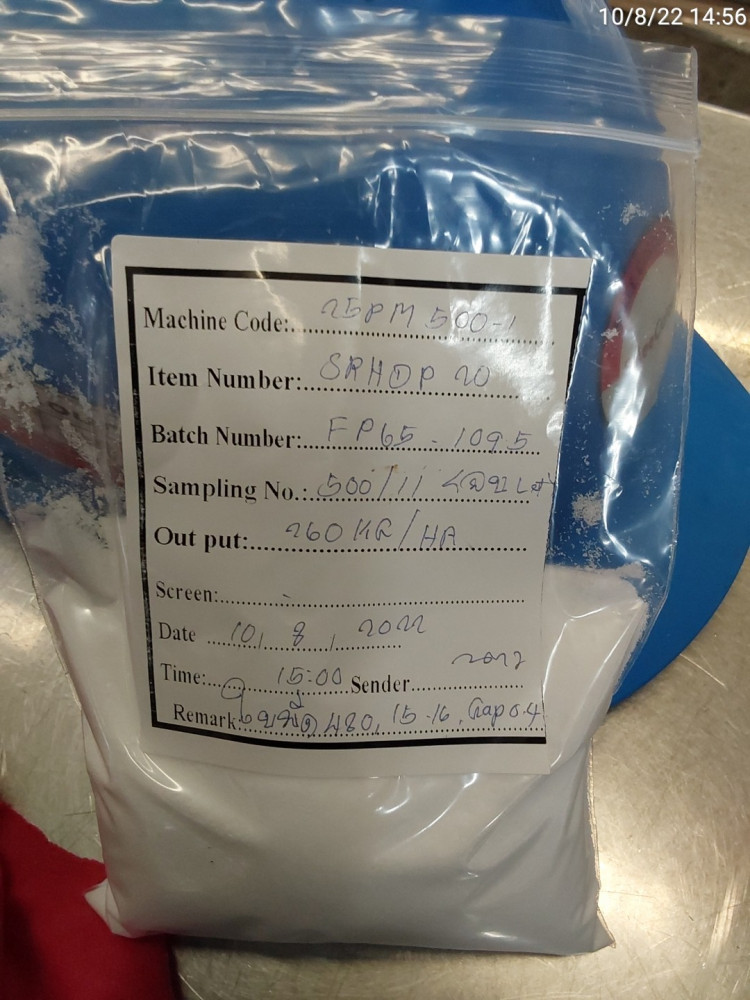 10/8/22 14:56
Machine Code: 25PM 500-1
Item Number: SRHDP 20
Batch Number: FP65 - 1095
Sampling No.: 500/11
Out put: 260 KG/HR
Screen: -
Date 10, 8, 2022
Time: 15:00 Sender
Remark 480, 15-16, Gap 0.4